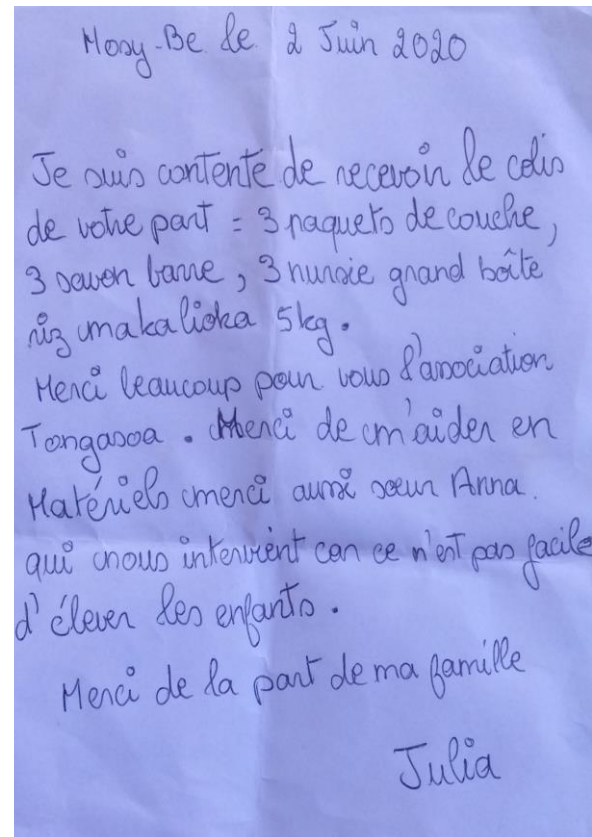 Nosy-Be le 2 Juin 2020
Je suis contente de recevoir le colis
de votre part = 3 paquets de couche,
3 savon barre, 3 nursie grand boîte
riz makalioka 5kg.
Merci beaucoup pour vous l'association
Tongasoa. Merci de m'aider en
Matériels merci aussi sœur Anna.
qui nous intervient car ce n'est pas facile
d'élever les enfants.
Merci de la part de ma famille
Julia